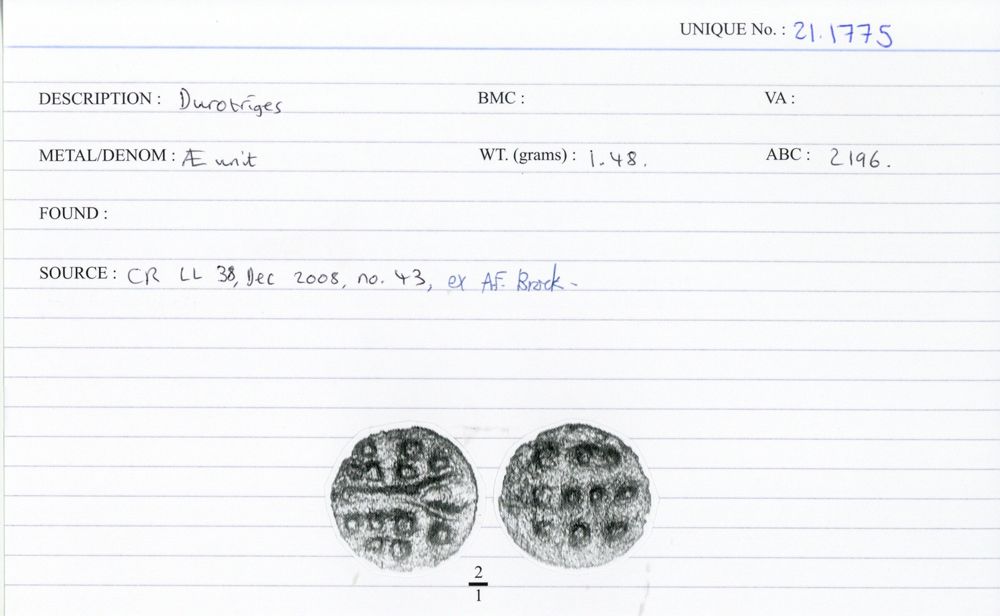 UNIQUE No. : 21.1775
DESCRIPTION : Durotriges BMC : VA :
METAL/DENOM : Æ unit WT. (grams) : 1.48. ABC : 2196.
FOUND :
SOURCE : CR LL 38, Dec 2008, no. 43, ex A.F. Brock -
2
1